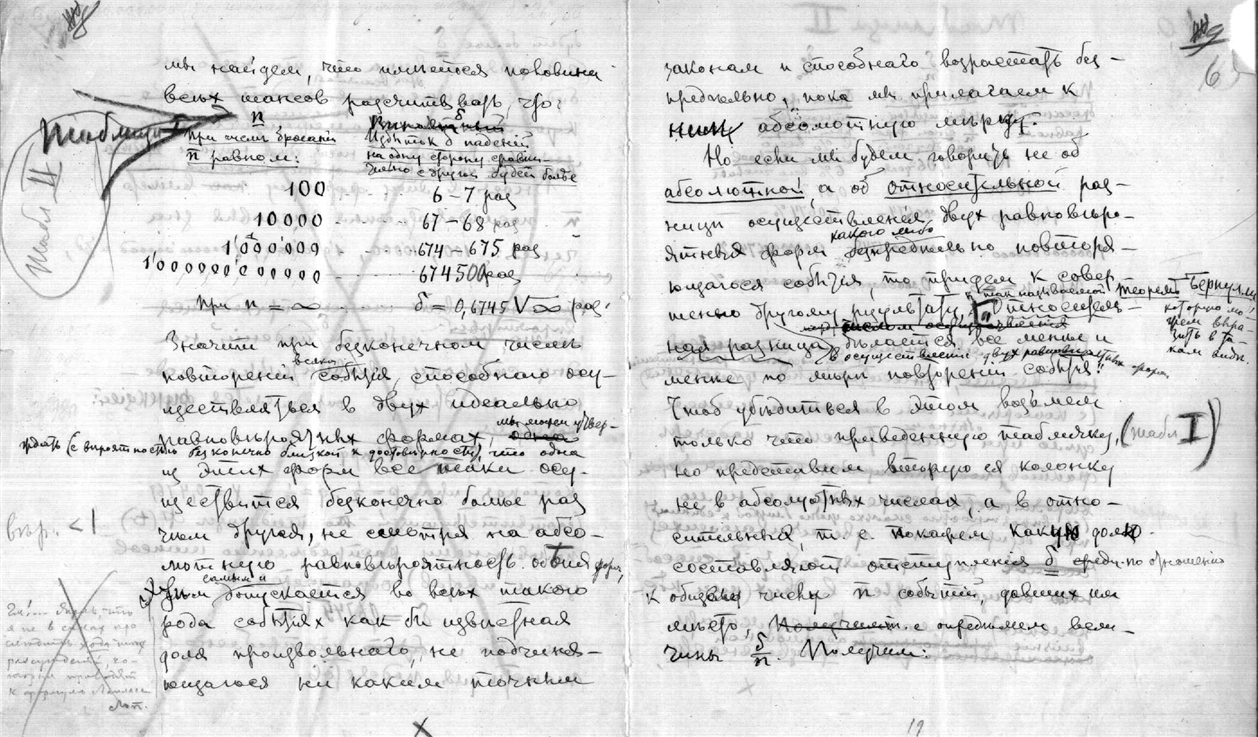 мы найдем что имеется половина
всех шансов разсчитывать, что:
Таблица I
Табл II
при числе бросаний
n равном:
Избыток δ падений
на одну сторону сравни-
тельно с другой будет более
100 6-7 раз
10000 67-68 раз
1'000'000 674-675 раз
1'000'000'000'000 674500 раз
При n = ∞ δ = 0,6745 √∞ раз.
Значит при безконечном числе
повторений всякого события, способного осу-
ществляться в двух идеально
равновероятных формах, мы можем утвер-
ждать (с вероятностью безконечно близкой к достоверности), что одна
из этих форм все таки осу-
ществится безконечно более раз
чем другая, не смотря на абсо-
лютную равновероятность обоих форм,
Этим самым и допускается во всех такого
рода событиях как бы известная
доля произвольного, не подчиня-
ющагося ни каким точным
вер. < 1
X
6
законам и способнаго возрастать без-
предельно, пока мы прилагаем к
нему абсолютную мерку.
Но если мы будем говорить не об
абсолютной а об относительной раз-
ницы осуществления двух равноверо-
ятных форм какого либо безпредельно повторя-
ющагося события, то придем к совер-
шенно другому результату, так называемой теореме Бернулли
которую мо-
жем выра-
зить в та-
ком виде
"Относитель-
ная разница делается все менее и
в осуществлении двух равновероятных форм
менее по мере повторений события"
Чтоб убедиться в этом возьмем
только что приведенную табличку, (табл I)
но представим вторую ея колонку
не в абсолютных числах, а в отно-
сительных, т. е. покажем какую долю
составляют отступления δ по отношению
к общему числу n событий, давших им
место, т. е. определяем вели-
чины δ/n. Получим:
19